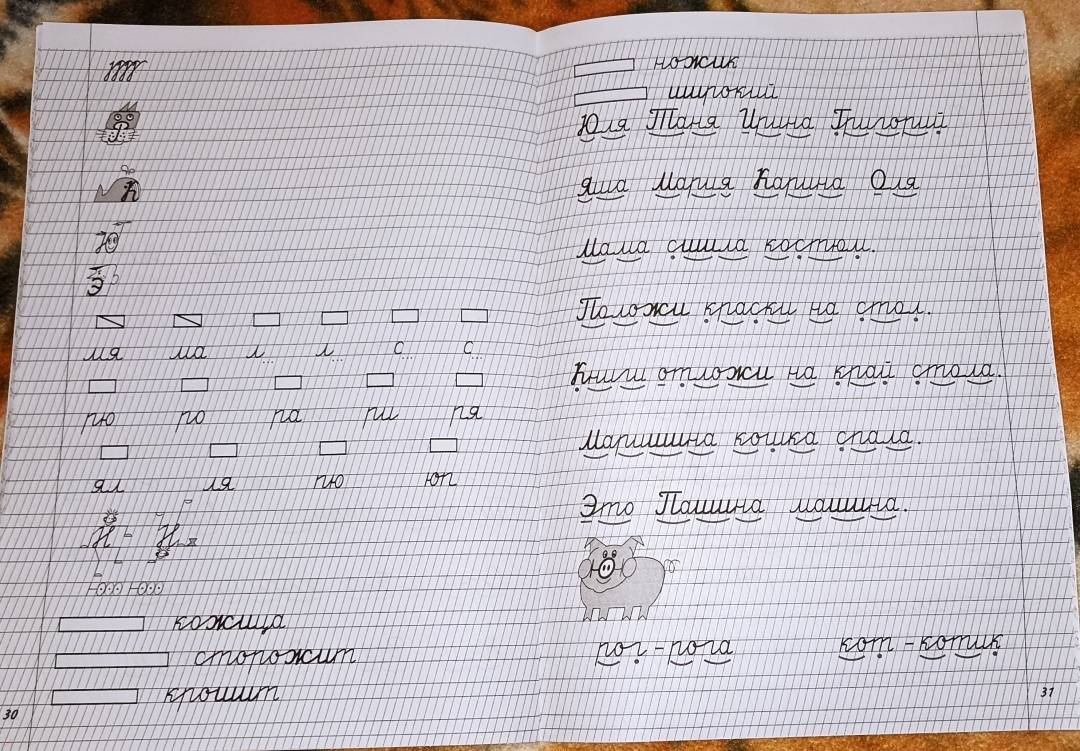 К
Ю
Э
мя ма л... л... с... с...
рю ро ра ри ря
ял ля пю юп
Н - Н
кожица
сторожит
крошит
30
ножик
широкий
Юля Таня Ирина Григорий
Яша Мария Карина Оля
Мама сшила костюм.
Положи краски на стол.
Книги отложи на край стола.
Маришина кошка спала.
Это Пашина машина.
рог - рога кот - котик
31